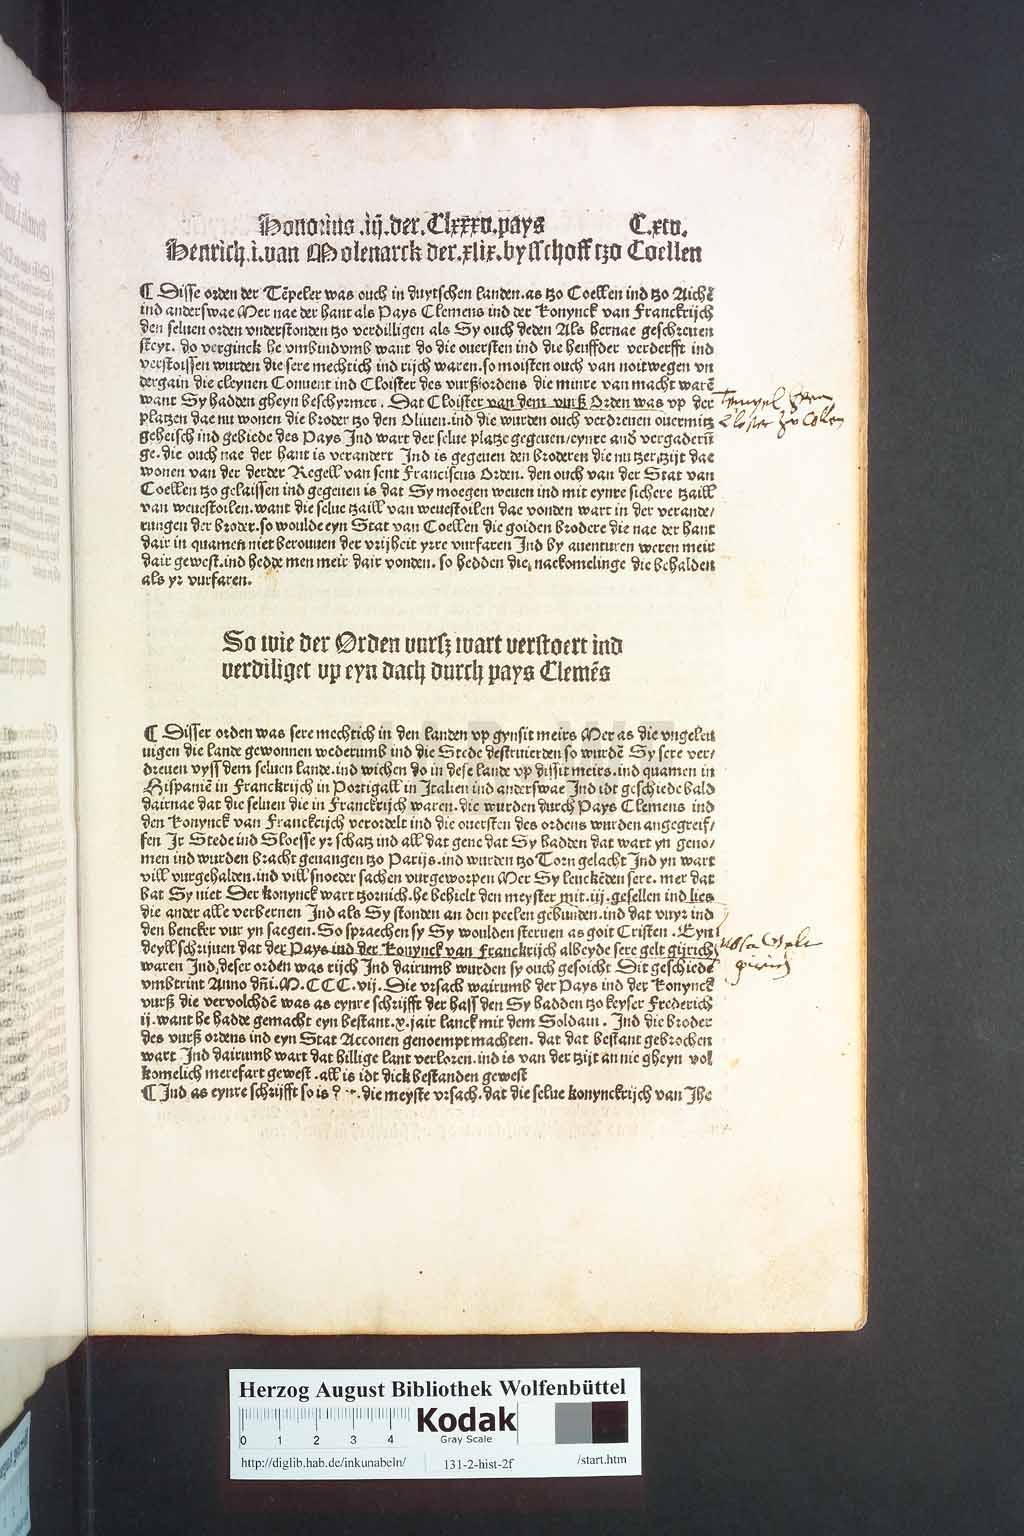 Honorius .iij. der. Clxxxv. pays C.xcv.
Henrich .i. van Molenarck der .xlix. bysschoff tzo Coellen
¶ Disse orden der Tẽpeler was ouch in duytschen landen. as tzo Coellen ind tzo Aichẽ
ind anderswae Mer nae der hant als Pays Clemens ind der Konynck van Franckrijch
den seluen orden vnderstonden tzo verdilligen als Sy ouch deden Als hernae geschreuen
steyt. do verginck he vmbindvmb want do die ouersten ind die heuffder verderfft ind
verstoissen wurden die sere mechtich ind rijch waren. so moisten ouch van noitwegen vn
dergain die cleynen Conuent ind Cloister des vurß ordens die minre van macht warẽ
want Sy hadden gheyn beschyrmer. Dat Cloister van dem vurß Orden was vp der
platzen dae nu wonen die broder tzo den Oliuen. ind die wurden ouch verdreuen ouermitz
geheisch ind gebiede des Pays Ind wart der selue platze gegeuen/eynre and vergaderũ
ge. die ouch nae der hant is verandert Ind is gegeuen den broderen die nu tzer tzijt dae
wonen van der derder Regell van sent Franciscus Orden. den ouch van der Stat van
Coellen tzo gelaissen ind gegeuen is dat Sy moegen weuen ind mit eynre sichere tzaill
van weuestoilen. want die selue tzaill van weuestoilen dae vonden wart in der verande/
rungen der broder. so woulde eyn Stat van Coellen die goiden brodere die nae der hant
dair in quamen niet berouuen der vrijheit yrre vurfaren Ind by auenturen weren meir
dair gewest. ind hedde men meir dair vonden. so hedden die naekomelinge die behalden
als yr vurfaren.
So wie der Orden vursz wart verstoert ind
verdiliget vp eyn dach durch pays Clemẽs
¶ Disser orden was sere mechtich in den landen vp gynsit meirs Mer as die vngeleu
uigen die lande gewonnen wederumb ind die Stede destruierden so wurdẽ Sy sere ver/
dreuen vyss dem seluen lande. ind wichen do in dese lande vp dissit meirs. ind quamen in
Hispaniẽ in Franckrijch in Portigall in Italien ind anderswae Ind idt geschiede bald
dairnae dat die seluen die in Franckrijch waren. die wurden durch Pays Clemens ind
den Konynck van Franckrijch verordelt ind die ouersten des ordens wurden angegreif/
fen Ir Stede ind Sloesse yr schatz ind all dat gene dat Sy hadden dat wart yn geno/
men ind wurden bracht geuangen tzo Parijs. ind wurden tzo Torn gelacht Ind yn wart
vill vurgehalden. ind vill snoeder sachen vurgeworpen Mer Sy lenckẽden sere. mer dat
hat Sy niet Der konynck wart tzornich. he behielt den meyster mit .iij. gesellen ind lies
die ander alle verbernen Ind als Sy stonden an den peelen gebunden. ind dat vuyr ind
den hencker vur yn saegen. So spraechen sy Sy woulden steruen as goit Cristen. Eyn
deyll schrijuen dat der Pays ind der Konynck van Franckrijch albeyde sere gelt gijrich
waren Ind deser orden was rijch Ind dairumb wurden sy ouch gesoicht Dit geschiede
vmbtrint Anno dñi. M.CCC.vij. Die vrsach wairumb der Pays ind der Konynck
vurß die vervolchdẽ was as eynre schrijfft der hass den Sy hadden tzo keyser Frederich
ij. want he hadde gemacht eyn bestant .x. jair lanck mit dem Soldain. Ind die broder
des vurß ordens ind eyn Stat Acconen genoempt machten. dat dat bestant gebrochen
wart Ind dairumb wart dat billige lant verloren. ind is van der tzijt an nie gheyn vol
komelich merefart gewest. all is idt dick bestanden gewest
¶ Ind as eynre schrijfft so is die meyste vrsach. dat die selue konynckrijch van Ihe
Tempel
Closter zu Collen
Herzog August Bibliothek Wolfenbüttel
0 1 2 3 4
Kodak
Gray Scale
http://diglib.hab.de/inkunabeln/ 131-2-hist-2f /start.htm